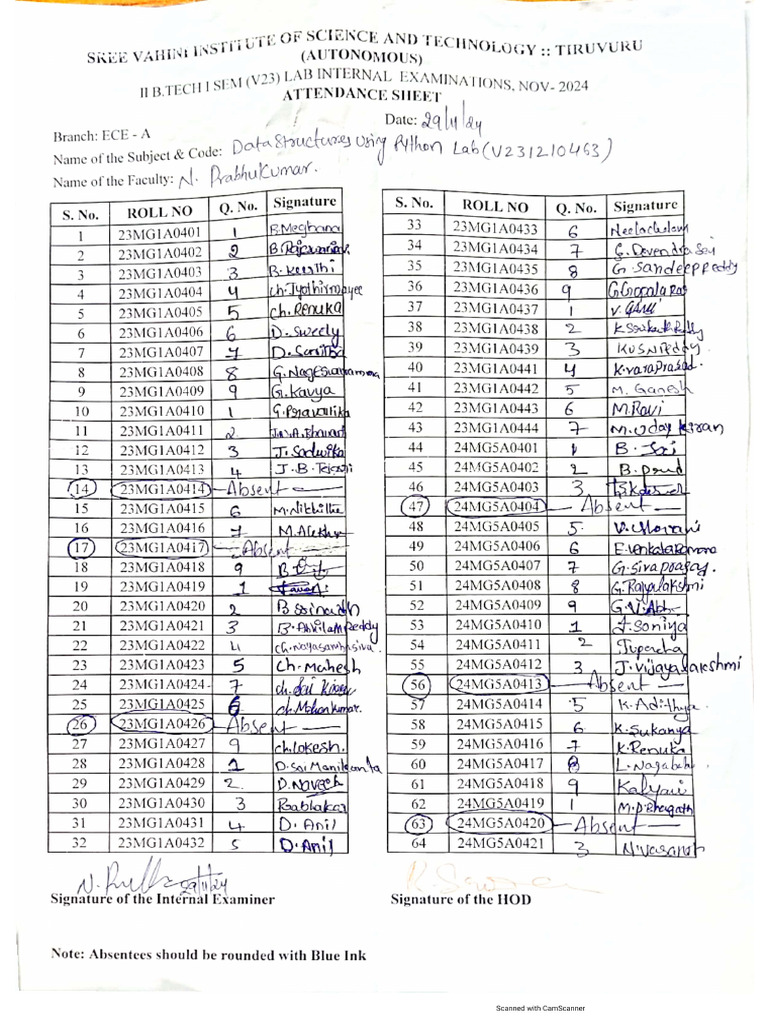 SREE VAHINI INSTITUTE OF SCIENCE AND TECHNOLOGY :: TIRUVURU
(AUTONOMOUS)
II B.TECH I SEM (V23) LAB INTERNAL EXAMINATIONS, NOV- 2024
ATTENDANCE SHEET
Date: 29/11/24
Branch: ECE - A
Name of the Subject & Code: Data Structures Using Python Lab (V231210463)
Name of the Faculty: N. Prabhukumar.
S. No. ROLL NO Q. No. Signature
1 23MG1A0401 1 B.Meghana
2 23MG1A0402 2
3 23MG1A0403 3 B. Keerthi
4 23MG1A0404 4 ch.Jyothirmayee
5 23MG1A0405 5 ch.Renuka
6 23MG1A0406 6 D. Sweely
7 23MG1A0407 7 D.
8 23MG1A0408 8 G.Nageswaramma
9 23MG1A0409 9 G.Kavya
10 23MG1A0410 1 G.Pravallika
11 23MG1A0411 2
12 23MG1A0412 3 J. Sadwika
13 23MG1A0413 4 J.B.
14 23MG1A0414 Absent
15 23MG1A0415 6
16 23MG1A0416 7
17 23MG1A0417 Absent
18 23MG1A0418 9
19 23MG1A0419 1
20 23MG1A0420 2 B Srinadh
21 23MG1A0421 3 B. Akhilam Reddy
22 23MG1A0422 4
23 23MG1A0423 5 Ch.Mahesh
24 23MG1A0424 7 ch. Sai Kiran
25 23MG1A0425 6 ch.Mohankumar.
26 23MG1A0426 Absent
27 23MG1A0427 9 ch.Lokesh.
28 23MG1A0428 1 D.Sai Manikanta
29 23MG1A0429 2 D.Naveen
30 23MG1A0430 3
31 23MG1A0431 4 D. Anil
32 23MG1A0432 5 D.Anil
S. No. ROLL NO Q. No. Signature
33 23MG1A0433 6 Neelachalam
34 23MG1A0434 7 G. Devendra Sai
35 23MG1A0435 8 G. Sandeep Reddy
36 23MG1A0436 9 G Gopala Rao
37 23MG1A0437 1
38 23MG1A0438 2
39 23MG1A0439 3
40 23MG1A0441 4 K.varaprasad.
41 23MG1A0442 5 M. Ganesh
42 23MG1A0443 6 M.Ravi
43 23MG1A0444 7 M.Uday Kiran
44 24MG5A0401 1 B. Sai
45 24MG5A0402 2 B.
46 24MG5A0403 3
47 24MG5A0404 Absent
48 24MG5A0405 5
49 24MG5A0406 6 E.Venkataramana
50 24MG5A0407 7 G.Sivaprasad.
51 24MG5A0408 8 G.Rajyalakshmi
52 24MG5A0409 9
53 24MG5A0410 1 J.Soniya
54 24MG5A0411 2
55 24MG5A0412 3 J.Vijayalakshmi
56 24MG5A0413 Absent
57 24MG5A0414 5 K.Adithya.
58 24MG5A0415 6 K.Sukanya
59 24MG5A0416 7 K.Renuka
60 24MG5A0417 8
61 24MG5A0418 9 Kalyani
62 24MG5A0419 1
63 24MG5A0420 Absent
64 24MG5A0421 3 N.Vasanth
29/11/24
Signature of the Internal Examiner
Signature of the HOD
Note: Absentees should be rounded with Blue Ink
Scanned with CamScanner